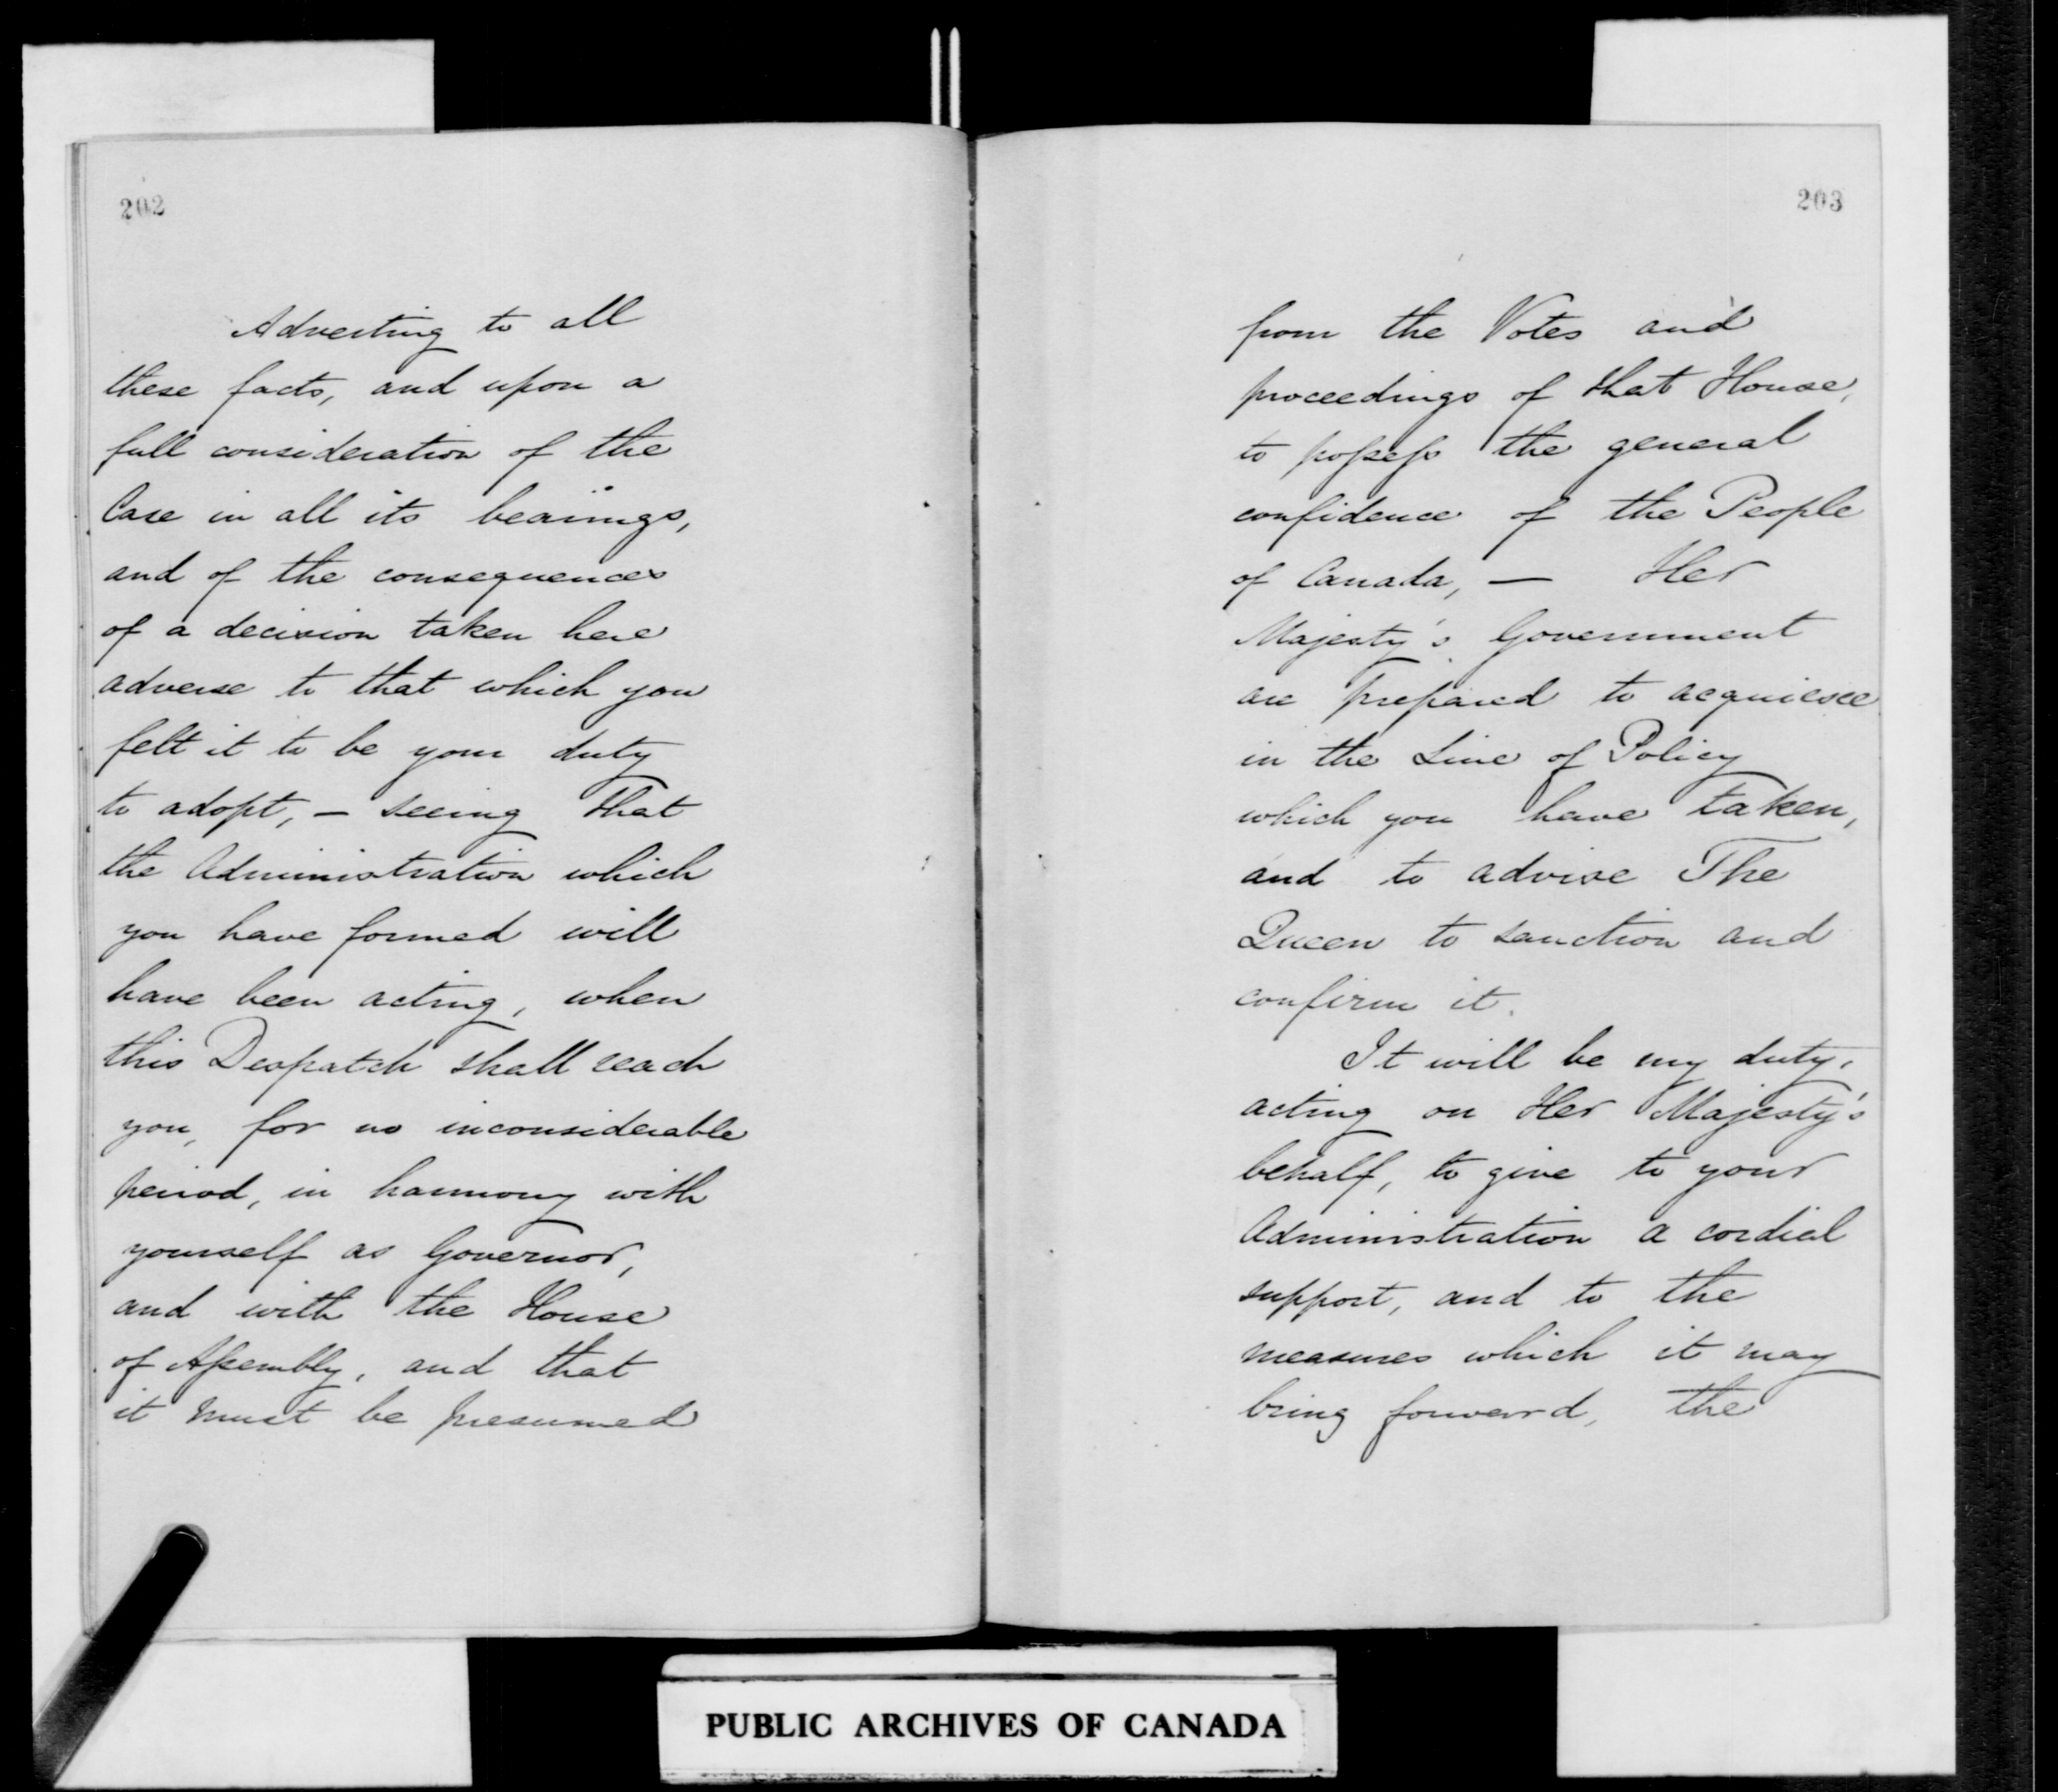 202
Adverting to all
these facts, and upon a
full consideration of the
Case in all its bearings,
and of the consequences
of a decision taken here
adverse to that which you
felt it to be your duty
to adopt, — seeing that
the Administration which
you have formed will
have been acting, when
this Despatch shall reach
you, for no inconsiderable
period, in harmony with
yourself as Governor,
and with the House
of Assembly, and that
it must be presumed
203
from the Votes and
proceedings of that House,
to possess the general
confidence of the People
of Canada, — Her
Majesty's Government
are prepared to acquiesce
in the Line of Policy
which you have taken,
and to advise The
Queen to sanction and
confirm it.
It will be my duty,
acting on Her Majesty's
behalf, to give to your
Administration a cordial
support, and to the
measures which it may
bring forward, the
PUBLIC ARCHIVES OF CANADA